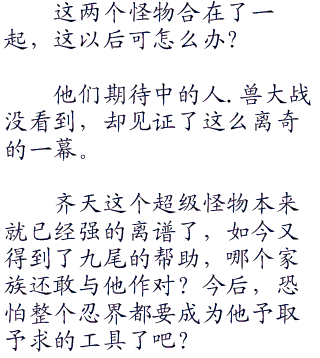 这两个怪物合在了一
起，这以后可怎么办？
他们期待中的人.兽大战
没看到，却见证了这么离奇
的一幕。
齐天这个超级怪物本来
就已经强的离谱了，如今又
得到了九尾的帮助，哪个家
族还敢与他作对？今后，恐
怕整个忍界都要成为他予取
予求的工具了吧？